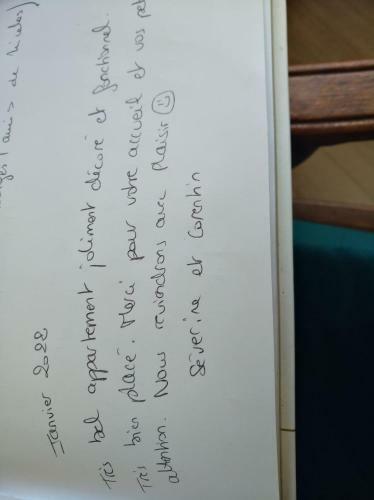 (amis de Nicolas)
Janvier 2022
Très bel appartement joliment décoré et fonctionnel.
Très bien placé. Merci pour votre accueil et vos pet
attention. Nous reviendrons avec plaisir ☺
Séverine et Corentin